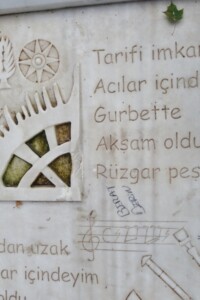 Tarifi imkan
Acılar içind
Gurbette
Akşam oldu
Rüzgar peş
dan uzak
lar içindeyim
oldu